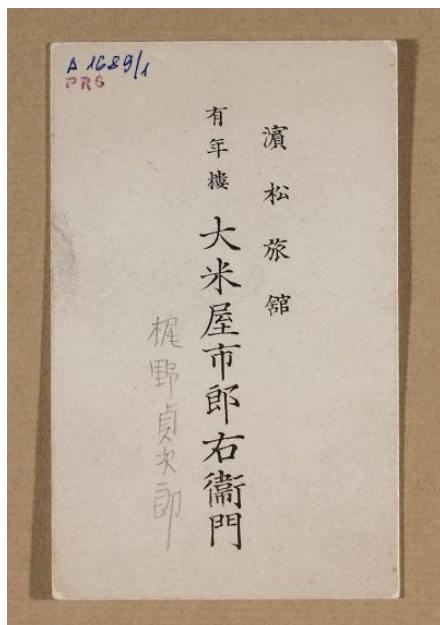 A 1689/1
PRS
濱松旅舘
有年樓 大米屋市郎右衞門
梶野貞次郎